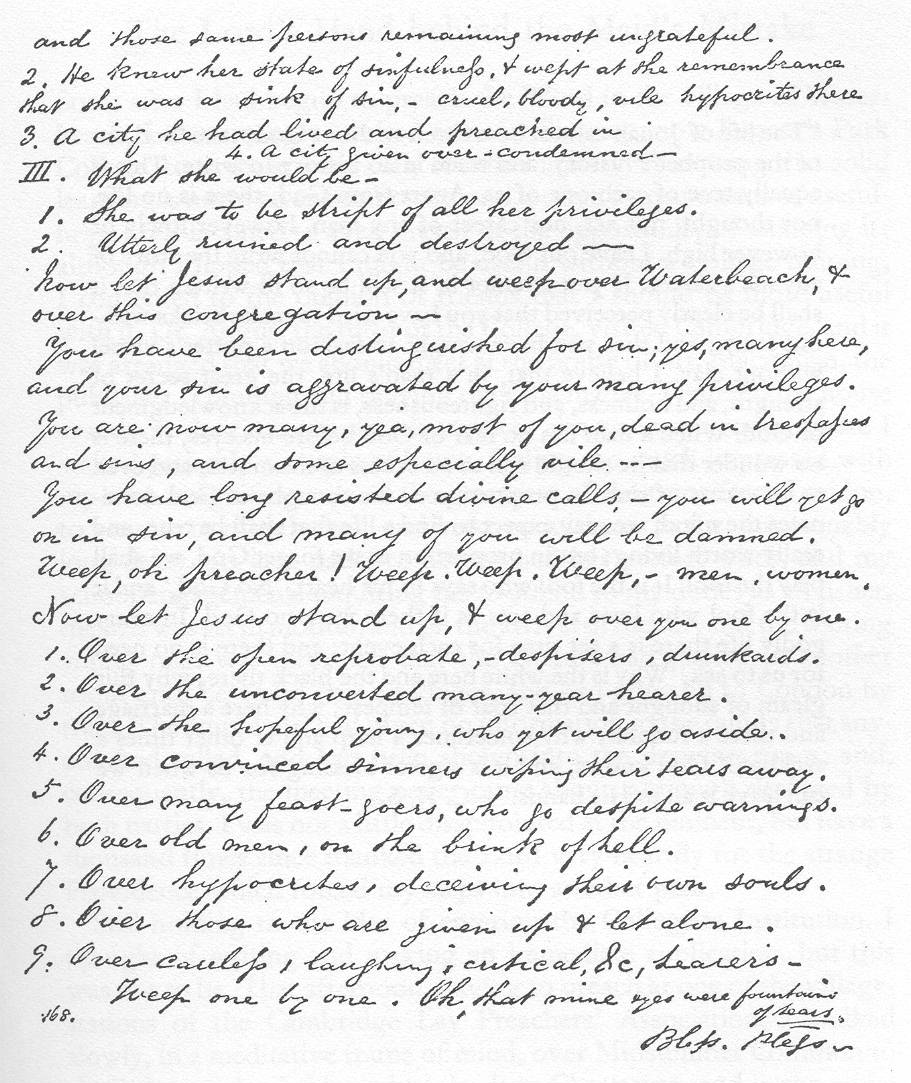 and those same persons remaining most ungrateful.
2. He knew her state of sinfulness, & wept at the remembrance
that she was a sink of sin, – cruel, bloody, vile hypocrites there
3. A city he had lived and preached in.
4. A city given over - condemned –
III. What she would be –
1. She was to be stript of all her privileges.
2. Utterly ruined and destroyed —
Now let Jesus stand up, and weep over Waterbeach, &
over this congregation —
You have been distinguished for sin; yes, many here,
and your sin is aggravated by your many privileges.
You are now many, yea, most of you, dead in trespasses
and sins, and some especially vile ---
You have long resisted divine calls, – you will yet go
on in sin, and many of you will be damned.
Weep, oh preacher! Weep. Weep. Weep, – men, women.
Now let Jesus stand up, & weep over you one by one.
1. Over the open reprobate, – despisers, drunkards.
2. Over the unconverted many-year hearer.
3. Over the hopeful young, who yet will go aside..
4. Over convinced sinners wiping their tears away.
5. Over many feast-goers, who go despite warnings.
6. Over old men, on the brink of hell.
7. Over hypocrites, deceiving their own souls.
8. Over those who are given up & let alone.
9. Over careless, laughing, critical, &c, hearers –
Weep one by one. Oh, that mine eyes were fountains
of tears.
168.
Bless. Bless.